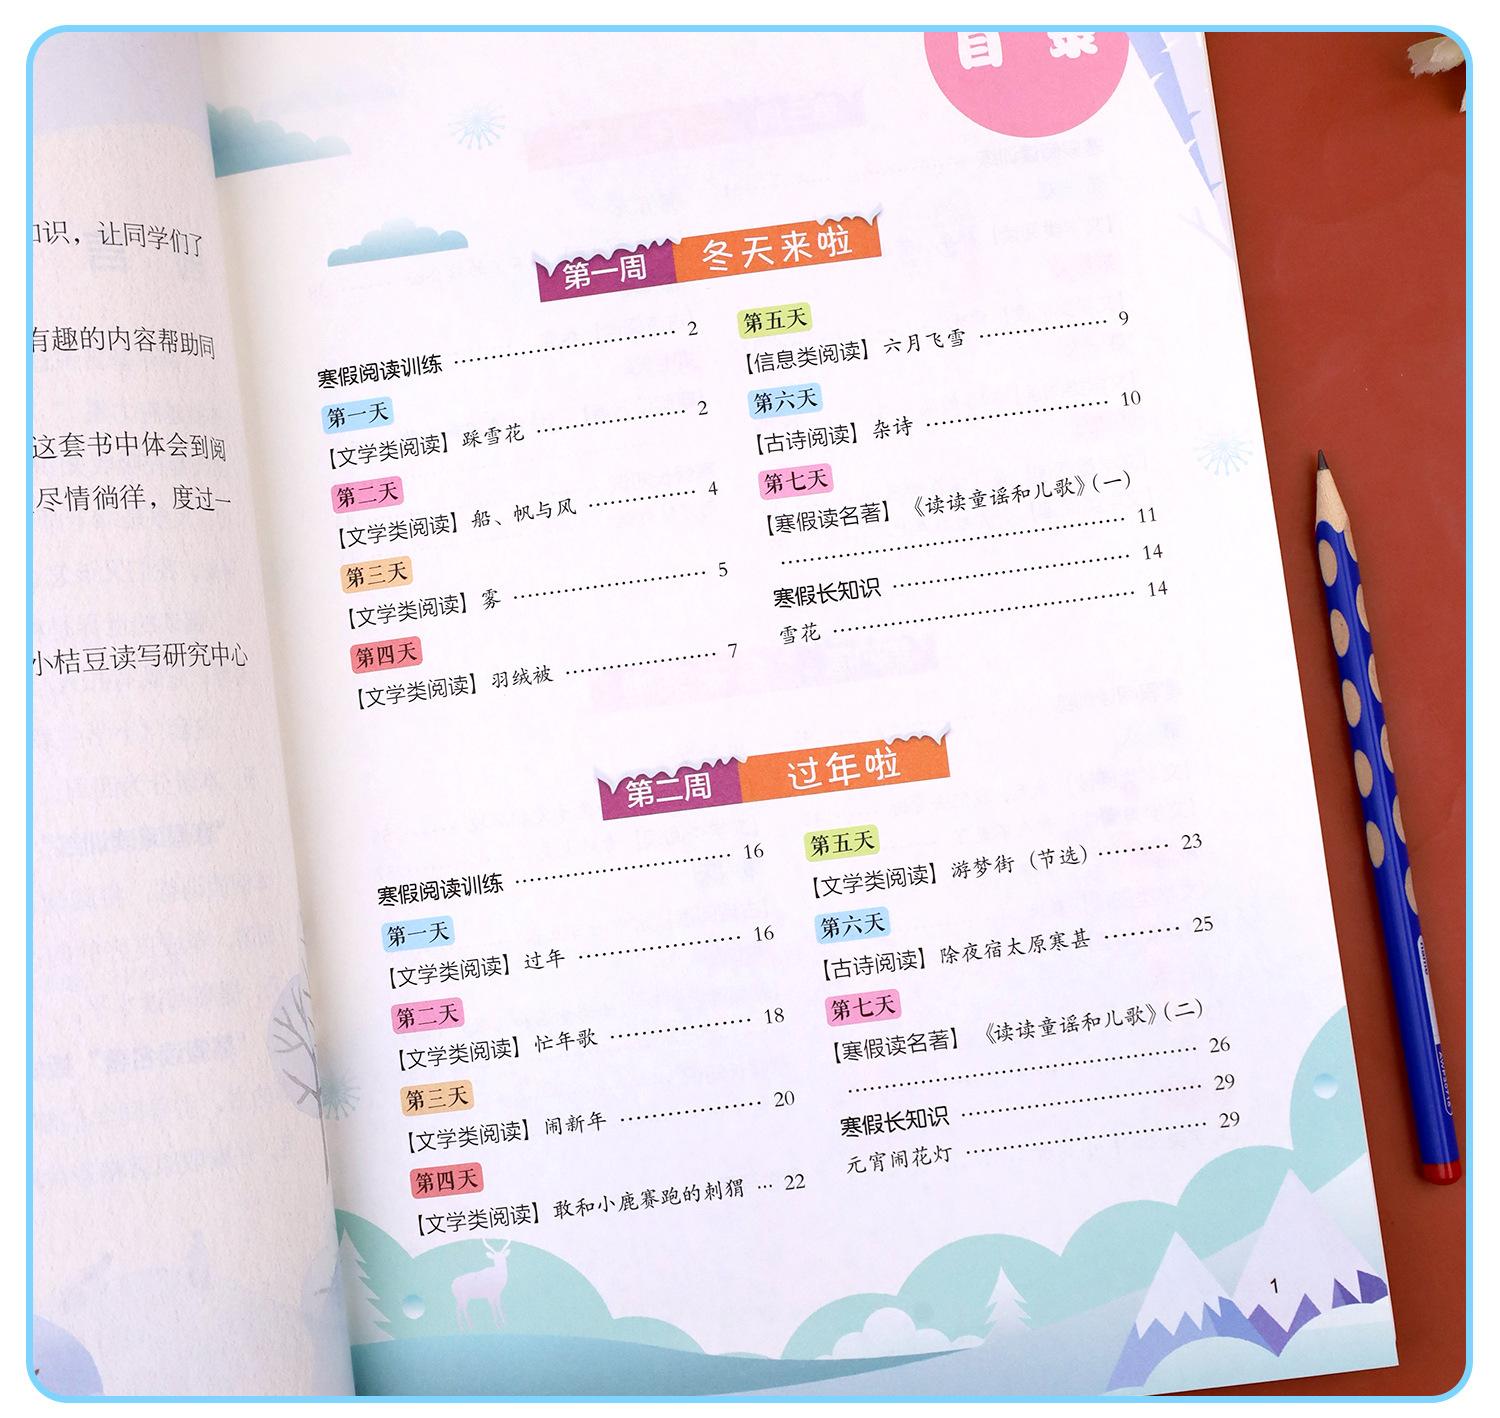 识，让同学们了
有趣的内容帮助同
这套书中体会到阅
尽情徜徉，度过一
小桔豆读写研究中心
目 录
第一周 冬天来啦
寒假阅读训练 …… 2
第一天
【文学类阅读】踩雪花 …… 2
第二天
【文学类阅读】船、帆与风 …… 4
第三天
【文学类阅读】雾 …… 5
第四天
【文学类阅读】羽绒被 …… 7
第五天
【信息类阅读】六月飞雪 …… 9
第六天
【古诗阅读】杂诗 …… 10
第七天
【寒假读名著】《读读童谣和儿歌》(一)
…… 11
寒假长知识 …… 14
雪花 …… 14
第二周 过年啦
寒假阅读训练 …… 16
第一天
【文学类阅读】过年 …… 16
第二天
【文学类阅读】忙年歌 …… 18
第三天
【文学类阅读】闹新年 …… 20
第四天
【文学类阅读】敢和小鹿赛跑的刺猬 … 22
第五天
【文学类阅读】游梦街（节选） …… 23
第六天
【古诗阅读】除夜宿太原寒甚 …… 25
第七天
【寒假读名著】《读读童谣和儿歌》(二)
…… 26
寒假长知识 …… 29
元宵闹花灯 …… 29
1